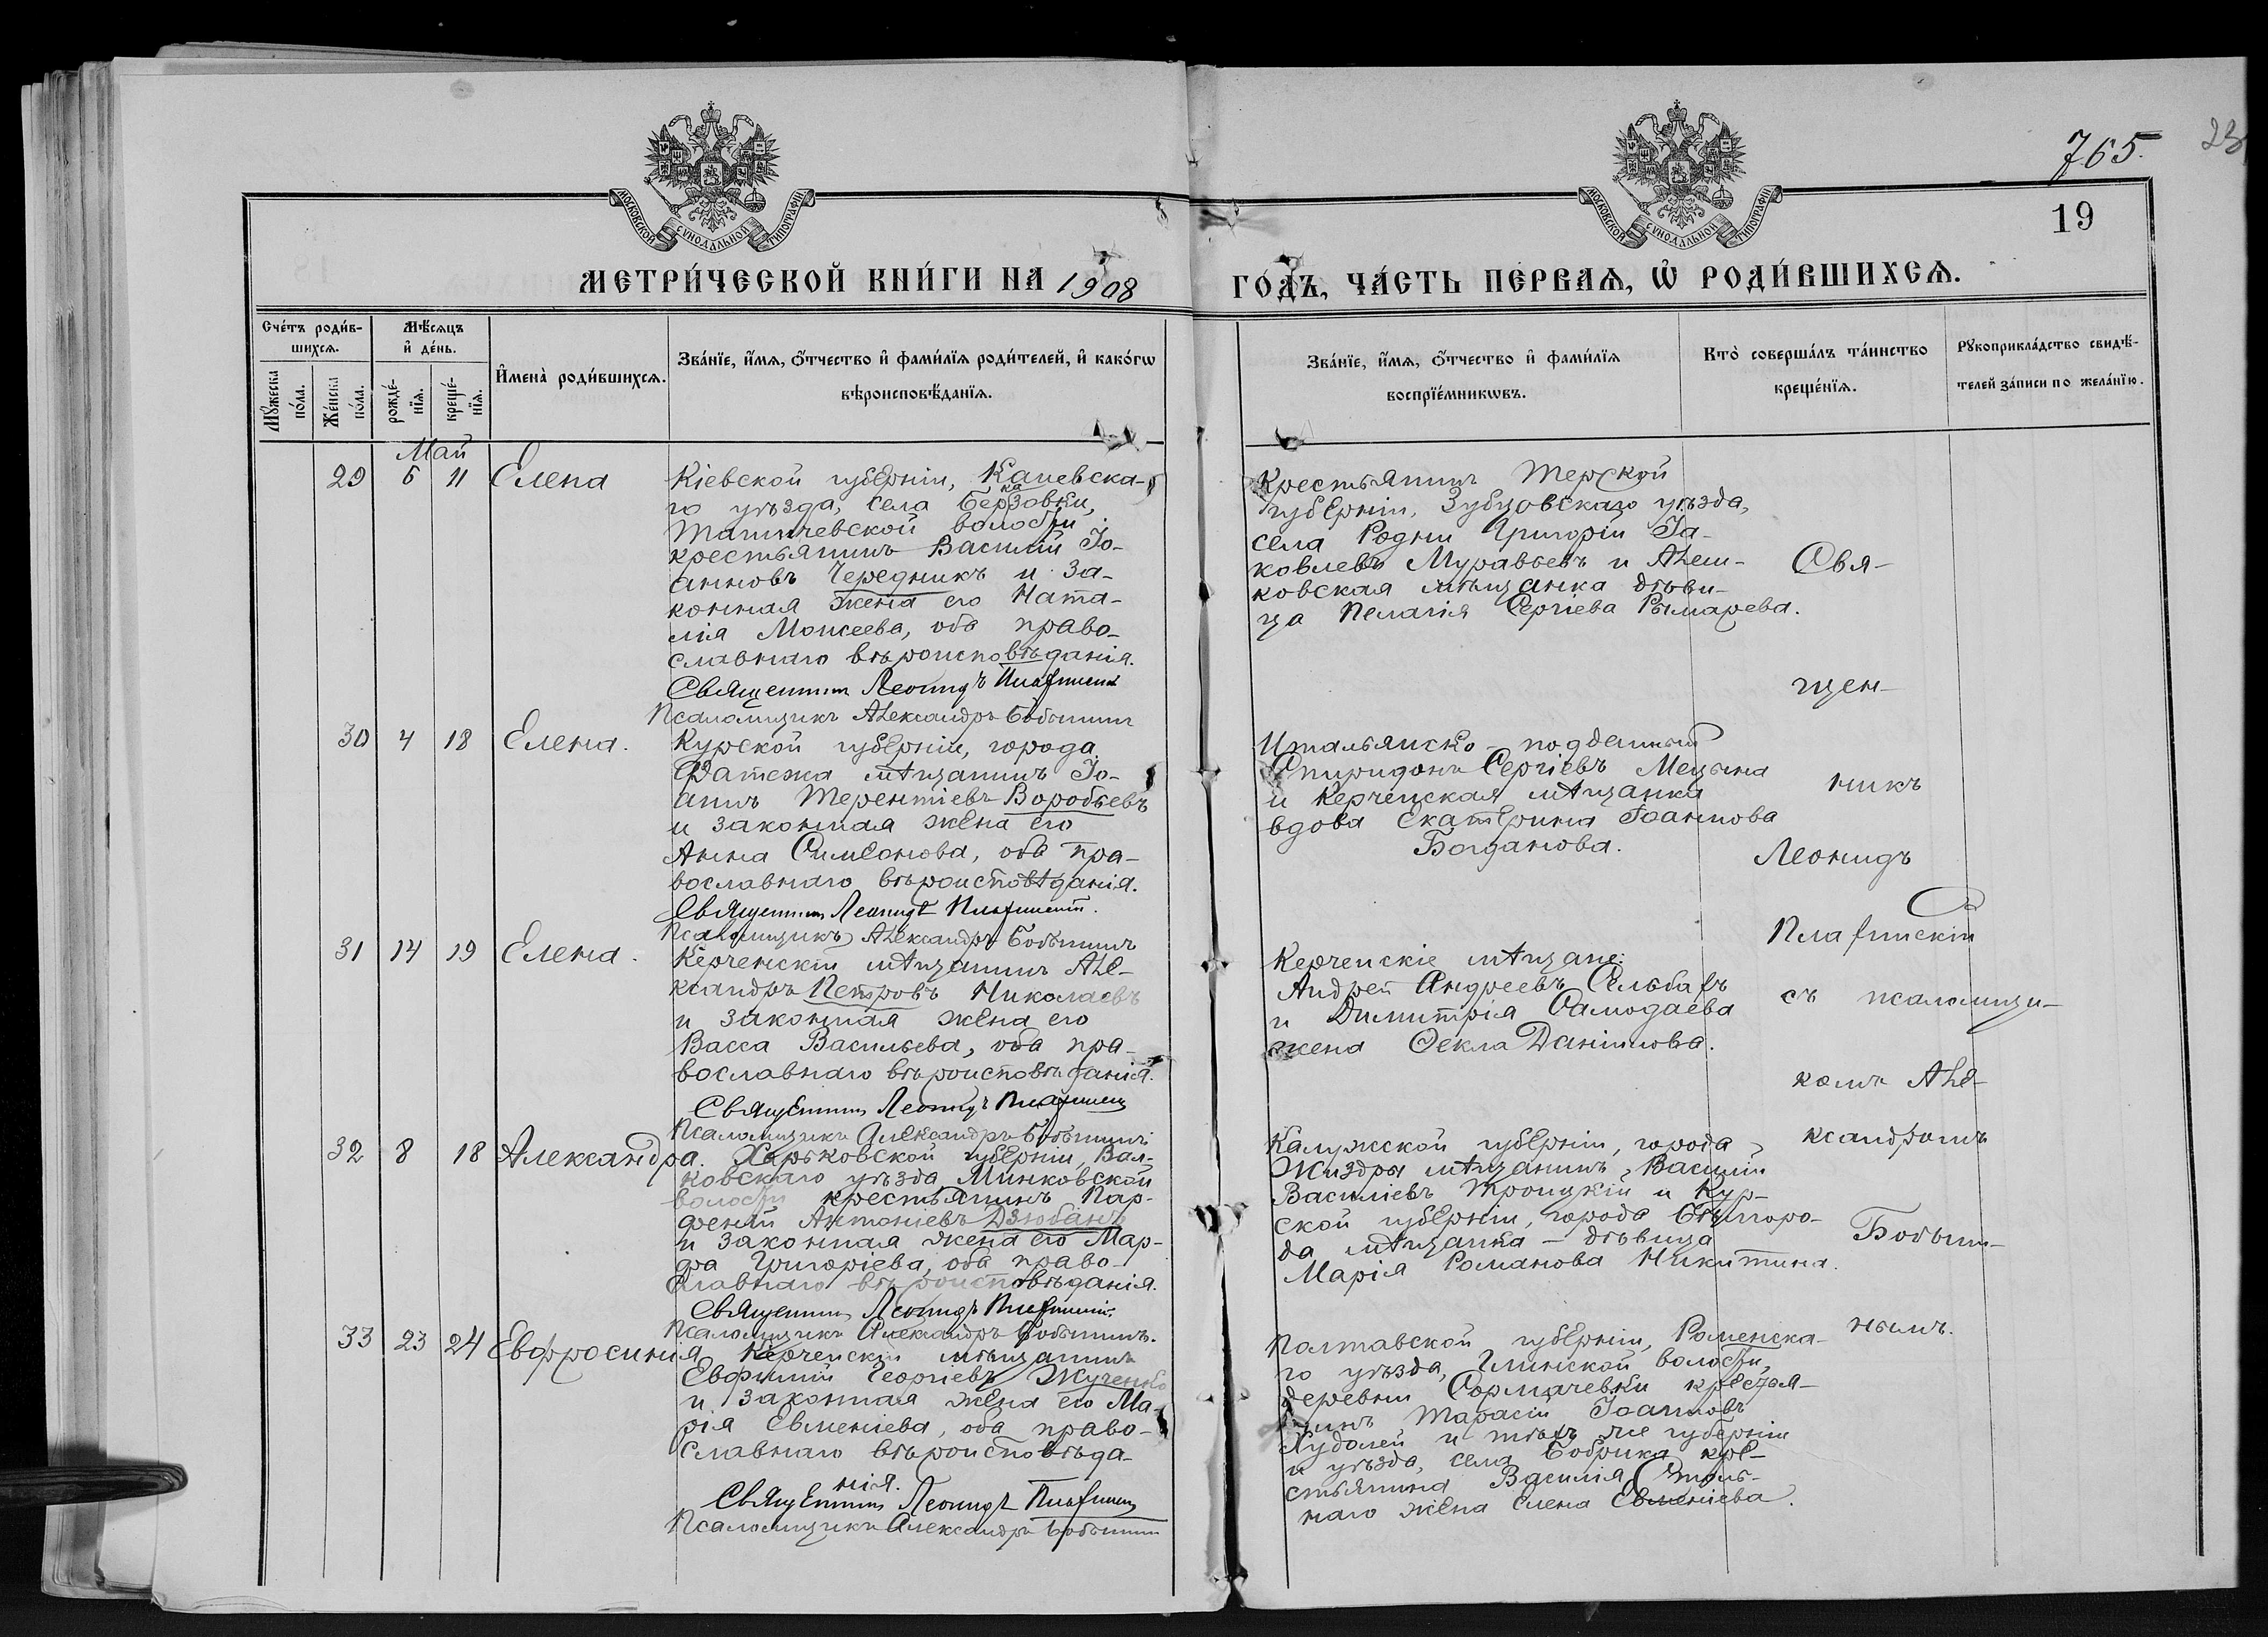 765.
23
19
МОСКОВСКОЙ СѴНОДАЛЬНОЙ ТИПОГРАФІИ
МОСКОВСКОЙ СѴНОДАЛЬНОЙ ТИПОГРАФІИ
МЕТРИ́ЧЕСКОЙ КНИ́ГИ НА 1908 ГО́ДЪ, ЧА́СТЬ ПЕ́РВАѦ, Ѡ҆ РОДИ́ВШИХСѦ.
Сче́тъ роди́в-
шихсѧ.
Мꙋ́жеска
по́ла.
Же́нска
по́ла.
Мѣ́сѧцъ
и҆ де́нь.
рожде́-
нїѧ.
креще́-
нїѧ.
И҆мена̀ роди́вшихсѧ.
Зва́нїе, и҆́мѧ, ѻ҆́тчество и҆ фами́лїѧ роди́телей, и҆ како́гѡ
вѣроисповѣ́данїѧ.
Зва́нїе, и҆́мѧ, ѻ҆́тчество и҆ фами́лїѧ
воспрїе́мникѡвъ.
Кто̀ соверша́лъ та́инство
креще́нїѧ.
Рꙋкоприкла́дство свидѣ́-
телей за́писи по жела́нїю.
Май
29 6 11 Елена
Кіевской губерніи, Каневска-
го уѣзда, села
волости
крестьянинъ Василій Іо-
анновъ Чередникъ и за-
конная жена его Ната-
лія Моисеева, оба право-
славнаго вѣроисповѣданія.
Священникъ Леонидъ
Псаломщикъ Александръ Бобынинъ
Крестьянинъ Тверской
губерніи, Зубцовскаго уѣзда,
села Родни Григорій Іа-
ковлевъ Муравьевъ и Алеш-
ковская мѣщанка дѣви-
ца Пелагія Сергіева Рымарева.
30 4 18 Елена.
Курской губерніи, города
Фатежа мѣщанинъ Іо-
аннъ Терентіевъ Воробьевъ
и законная жена его
Анна Симеонова, оба пра-
вославнаго вѣроисповѣданія.
Священникъ Леонидъ
Псаломщикъ Александръ Бобынинъ
Итальянско-подданный
Спиридонъ Сергіевъ Мецына
и Керченская мѣщанка
вдова Екатерина Іоаннова
Богданова.
31 14 19 Елена.
Керченскій мѣщанинъ Але-
ксандръ Петровъ Николаевъ
и законная жена его
Васса Васильева, оба пра-
вославнаго вѣроисповѣданія.
Священникъ Леонидъ
Псаломщикъ Александръ Бобынинъ
Керченскіе мѣщане:
Андрей Андреевъ
и Димитрія Самодаева
жена Ѳекла Даніилова.
32 8 18 Александра.
Харьковской губерніи, Вал-
ковскаго уѣзда, Минковской
волости крестьянинъ Пар-
феній Антоніевъ Дзюбанъ
и законная жена его Мар-
фа Григоріева, оба право-
славнаго вѣроисповѣданія.
Священникъ Леонидъ
Псаломщикъ Александръ Бобынинъ.
Калужской губерніи, города
Жиздры мѣщанинъ Василій
Василіевъ Троицкій и Кур-
ской губерніи, города Бѣлгоро-
да мѣщанка - дѣвица
Марія Романова Никитина.
33 23 24 Евфросинія
Керченскій мѣщанинъ
Евфимій Георгіевъ Жученко
и законная жена его Ма-
рія Евменіева, оба право-
славнаго вѣроисповѣда-
нія.
Священникъ Леонидъ
Псаломщикъ Александръ Бобынинъ
Полтавской губерніи, Роменска-
го уѣзда, Глинской волости,
деревни Сормачевки крестья-
нинъ Тарасій Іоанновъ
Худолей и тѣхъ же губерніи
и уѣзда, села Бобрика кре-
стьянина Василія
наго жена Елена Евменіева.
Свя-
щен-
никъ
Леонидъ
съ псаломщи-
комъ Але-
ксандромъ
Бобыни-
нымъ.